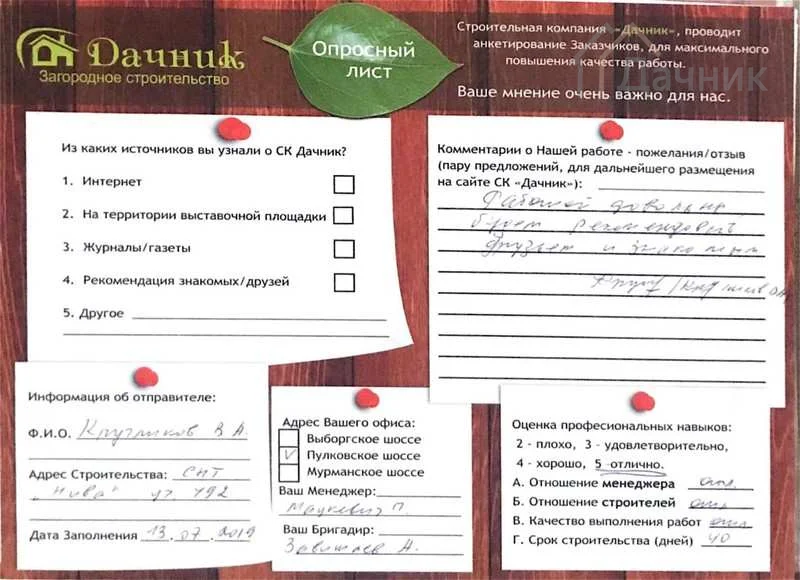 Дачник
Загородное строительство
Опросный
лист
Строительная компания «Дачник», проводит
анкетирование Заказчиков, для максимального
повышения качества работы.
Ваше мнение очень важно для нас.
Дачник
Из каких источников вы узнали о СК Дачник?
1. Интернет
2. На территории выставочной площадки
3. Журналы/газеты
4. Рекомендация знакомых/друзей
5. Другое
Комментарии о Нашей работе - пожелания/отзыв
(пару предложений, для дальнейшего размещения
на сайте СК «Дачник»):
Работой довольны
будем рекомендовать
друзьям и знакомым
Информация об отправителе:
Ф.И.О. Кругликов В А.
Адрес Строительства: СНТ
"Нива" уч. 492
Дата Заполнения 13.07.2019
Адрес Вашего офиса:
Выборгское шоссе
V Пулковское шоссе
Мурманское шоссе
Ваш Менеджер:
Мацкевич П.
Ваш Бригадир:
А.
Оценка профессиональных навыков:
2 - плохо, 3 - удовлетворительно,
4 - хорошо, 5 -отлично.
А. Отношение менеджера отл.
Б. Отношение строителей отл.
В. Качество выполнения работ отл.
Г. Срок строительства (дней) 40